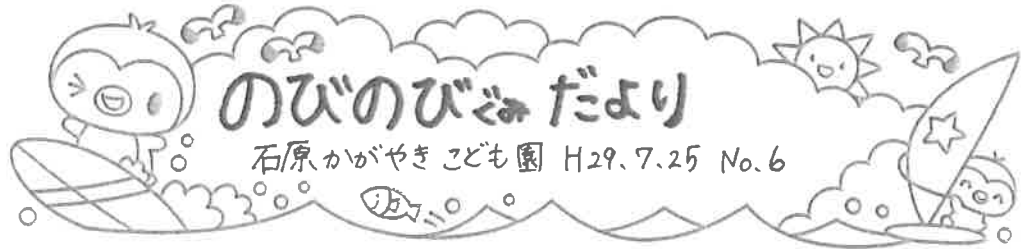 のびのびぐみ だより
石原かがやきこども園 H29.7.25 No.6